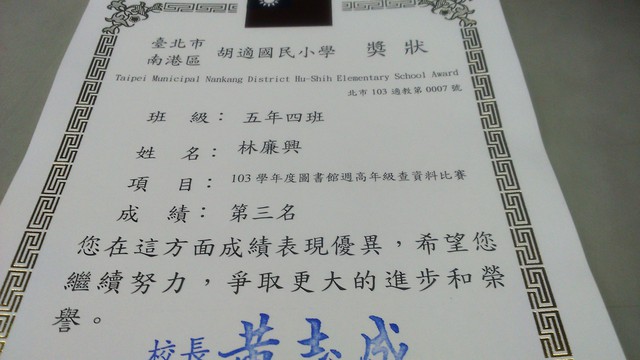 臺北市
南港區 胡適國民小學 獎狀
Taipei Municipal Nankang District Hu-Shih Elementary School Award
北市 103 適教第 0007 號
班 級： 五年四班
姓 名： 林廉興
項 目： 103 學年度圖書館週高年級查資料比賽
成 績： 第三名
您在這方面成績表現優異，希望您
繼續努力，爭取更大的進步和榮
譽。
校長 黃志成